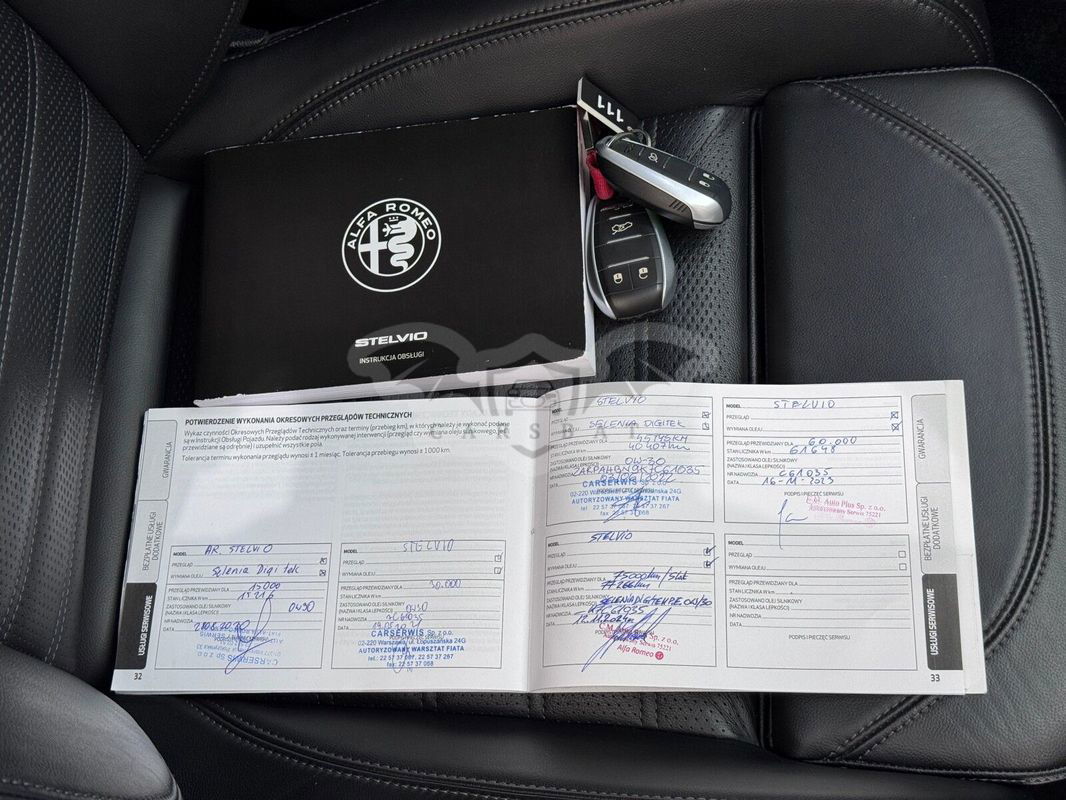 111
ALFA ROMEO
STELVIO
INSTRUKCJA OBSŁUGI
CARSERWIS
POTWIERDZENIE WYKONANIA OKRESOWYCH PRZEGLĄDÓW TECHNICZNYCH
Wykaz czynności Okresowych Przeglądów Technicznych oraz terminy (przebieg km), w których należy je wykonać podane
są w Instrukcji Obsługi Pojazdu. Należy podać rodzaj wykonywanej interwencji (przegląd czy wymiana oleju silnikowego, jeśli
przewidziane są odrębnie) i uzupełnić wszystkie pola.
Tolerancja terminu wykonania przeglądu wynosi ± 1 miesiąc. Tolerancja przebiegu wynosi ± 1000 km.
GWARANCJA
BEZPŁATNE USŁUGI
DODATKOWE
USŁUGI SERWISOWE
MODEL AR. STELVIO
PRZEGLĄD
WYMIANA OLEJU Selenia Digitek
PRZEGLĄD PRZEWIDZIANY DLA 15000
STAN LICZNIKA W km
ZASTOSOWANO OLEJ SILNIKOWY
(NAZWA I KLASA LEPKOŚCI) 0W30
NR NADWOZIA
DATA
32
MODEL STELVIO
PRZEGLĄD
WYMIANA OLEJU
PRZEGLĄD PRZEWIDZIANY DLA 30.000
STAN LICZNIKA W km
ZASTOSOWANO OLEJ SILNIKOWY
(NAZWA I KLASA LEPKOŚCI) 0W30
NR NADWOZIA 7C61035
DATA
CARSERWIS Sp. z o.o.
02-220 Warszawa, ul. Łopuszańska 24G
AUTORYZOWANY WARSZTAT FIATA
tel.: 22 57 37 267
fax 22 57 37 068
MODEL STELVIO
PRZEGLĄD
WYMIANA OLEJU SELENIA DIGITEK
PRZEGLĄD PRZEWIDZIANY DLA
STAN LICZNIKA W km
ZASTOSOWANO OLEJ SILNIKOWY 0W-30
(NAZWA I KLASA LEPKOŚCI)
NR NADWOZIA
DATA
CARSERWIS Sp. z o.o.
02-220 Warszawa, Łopuszańska 24G
AUTORYZOWANY WARSZTAT FIATA
fax 22 57 37 068
MODEL STELVIO
PRZEGLĄD
WYMIANA OLEJU
PRZEGLĄD PRZEWIDZIANY DLA 60.000
STAN LICZNIKA W km 61648
ZASTOSOWANO OLEJ SILNIKOWY
(NAZWA I KLASA LEPKOŚCI)
NR NADWOZIA C61035
DATA 16-11-2023
PODPIS I PIECZĘĆ SERWISU
Auto Plus Sp. z o.o.
Autoryzowany Serwis 75221
MODEL STELVIO
PRZEGLĄD
WYMIANA OLEJU
PRZEGLĄD PRZEWIDZIANY DLA 75000km/5lat
STAN LICZNIKA W km
ZASTOSOWANO OLEJ SILNIKOWY
(NAZWA I KLASA LEPKOŚCI)
NR NADWOZIA
DATA
Alfa Romeo
MODEL
PRZEGLĄD
WYMIANA OLEJU
PRZEGLĄD PRZEWIDZIANY DLA
STAN LICZNIKA W km
ZASTOSOWANO OLEJ SILNIKOWY
(NAZWA I KLASA LEPKOŚCI)
NR NADWOZIA
DATA
PODPIS I PIECZĘĆ SERWISU
GWARANCJA
BEZPŁATNE USŁUGI
DODATKOWE
USŁUGI SERWISOWE
33